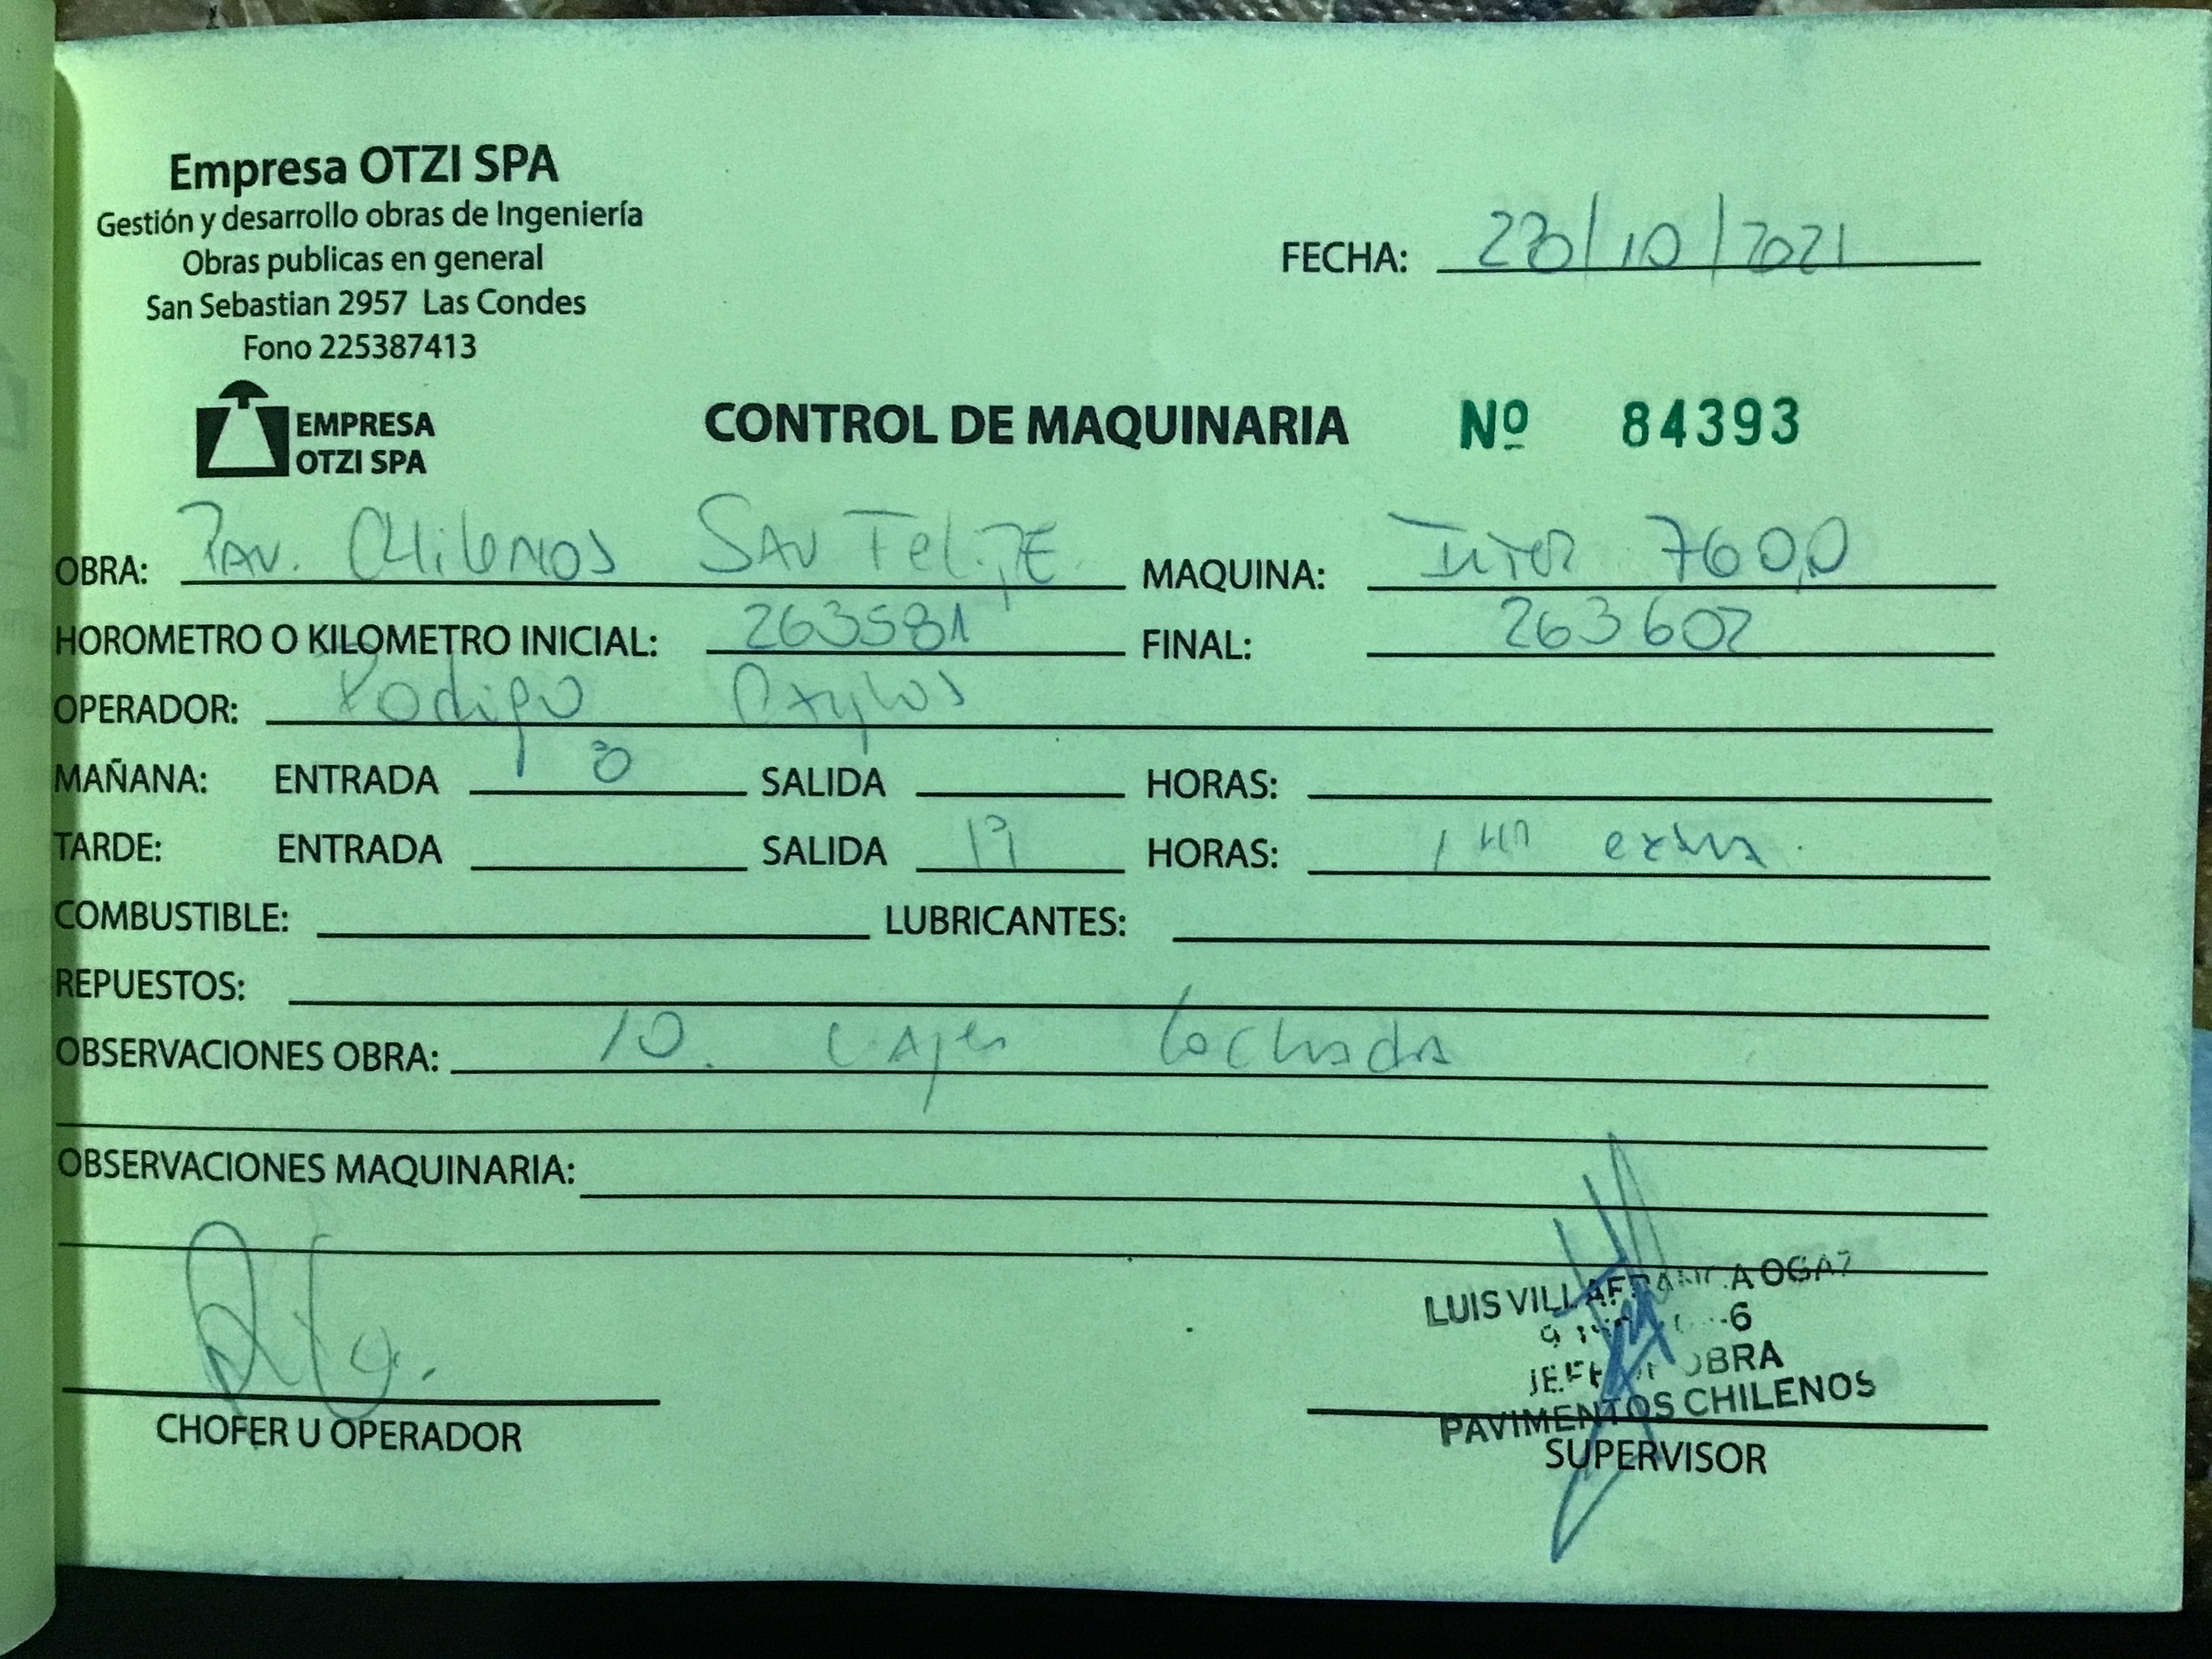 Empresa OTZI SPA
Gestión y desarrollo obras de Ingeniería
Obras publicas en general
San Sebastian 2957 Las Condes
Fono 225387413
FECHA: /10/2021
EMPRESA
OTZI SPA
CONTROL DE MAQUINARIA Nº 84393
OBRA: PAV. CHilENOS SAN FeliPE MAQUINA: INTER 7600
HOROMETRO O KILOMETRO INICIAL: 263581 FINAL: 263602
OPERADOR: Rodrigo
MAÑANA: ENTRADA 8 SALIDA HORAS:
TARDE: ENTRADA SALIDA 19 HORAS: 1 HR extra.
COMBUSTIBLE: LUBRICANTES:
REPUESTOS:
OBSERVACIONES OBRA: 10. CAJAS
OBSERVACIONES MAQUINARIA:
LUIS VILLAFRANCA OGAZ
-6
JEFE DE OBRA
PAVIMENTOS CHILENOS
CHOFER U OPERADOR
SUPERVISOR